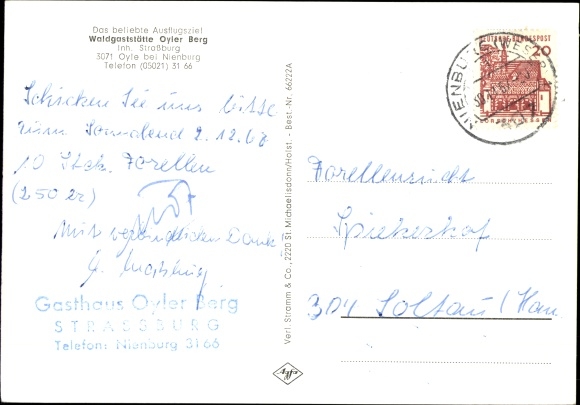 Das beliebte Ausflugsziel
Waldgaststätte Oyler Berg
Inh. Straßburg
3071 Oyle bei Nienburg
Telefon (05021) 31 66
Schicken Sie uns bitte
zum Sonnabend 2.12.68
10 Stck. Forellen
(250 gr)
Mit verbindlichen Dank
Gasthaus Oyler Berg
STRASSBURG
Telefon: Nienburg 31 66
Verl. Stramm & Co., 2220 St. Michaelisdonn/Holst. - Best.-Nr. 66222A
Agfa
DEUTSCHE BUNDESPOST
20
NIENBURG (WESER)
Forellenzucht
Spiekerhof
304 Soltau/Han